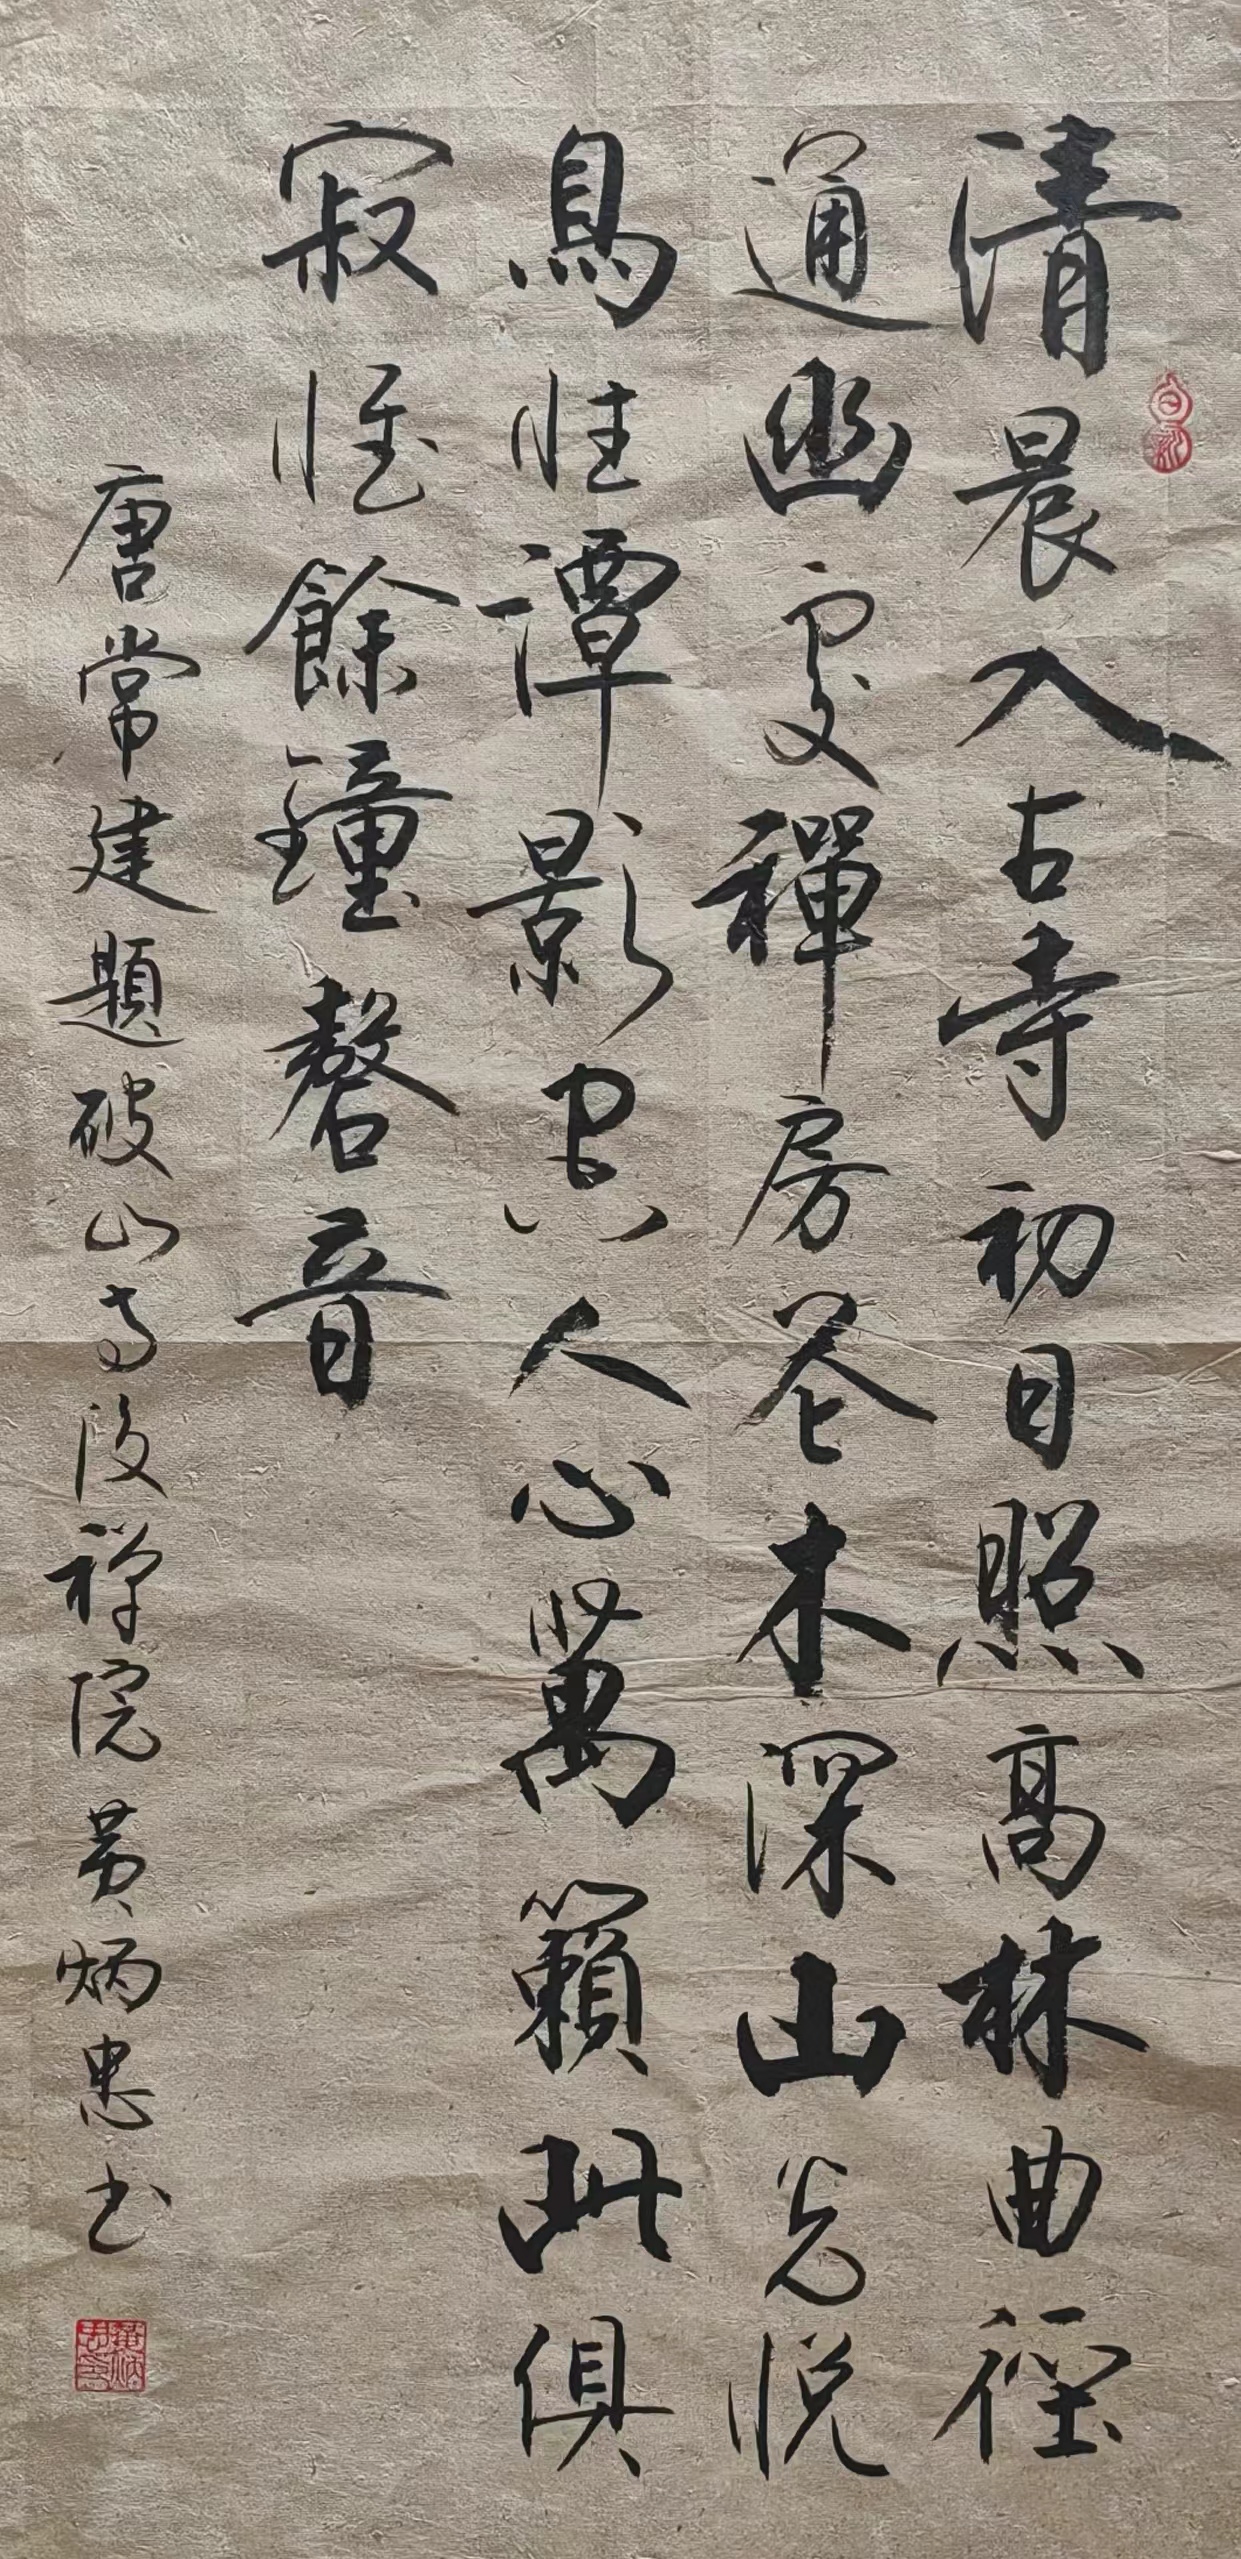 清晨入古寺初日照高林曲徑
通幽處禪房花木深山光悅
鳥性潭影空人心萬籟此俱
寂惟餘鐘磬音
唐常建題破山寺後禅院黃炳忠书
黃炳忠印